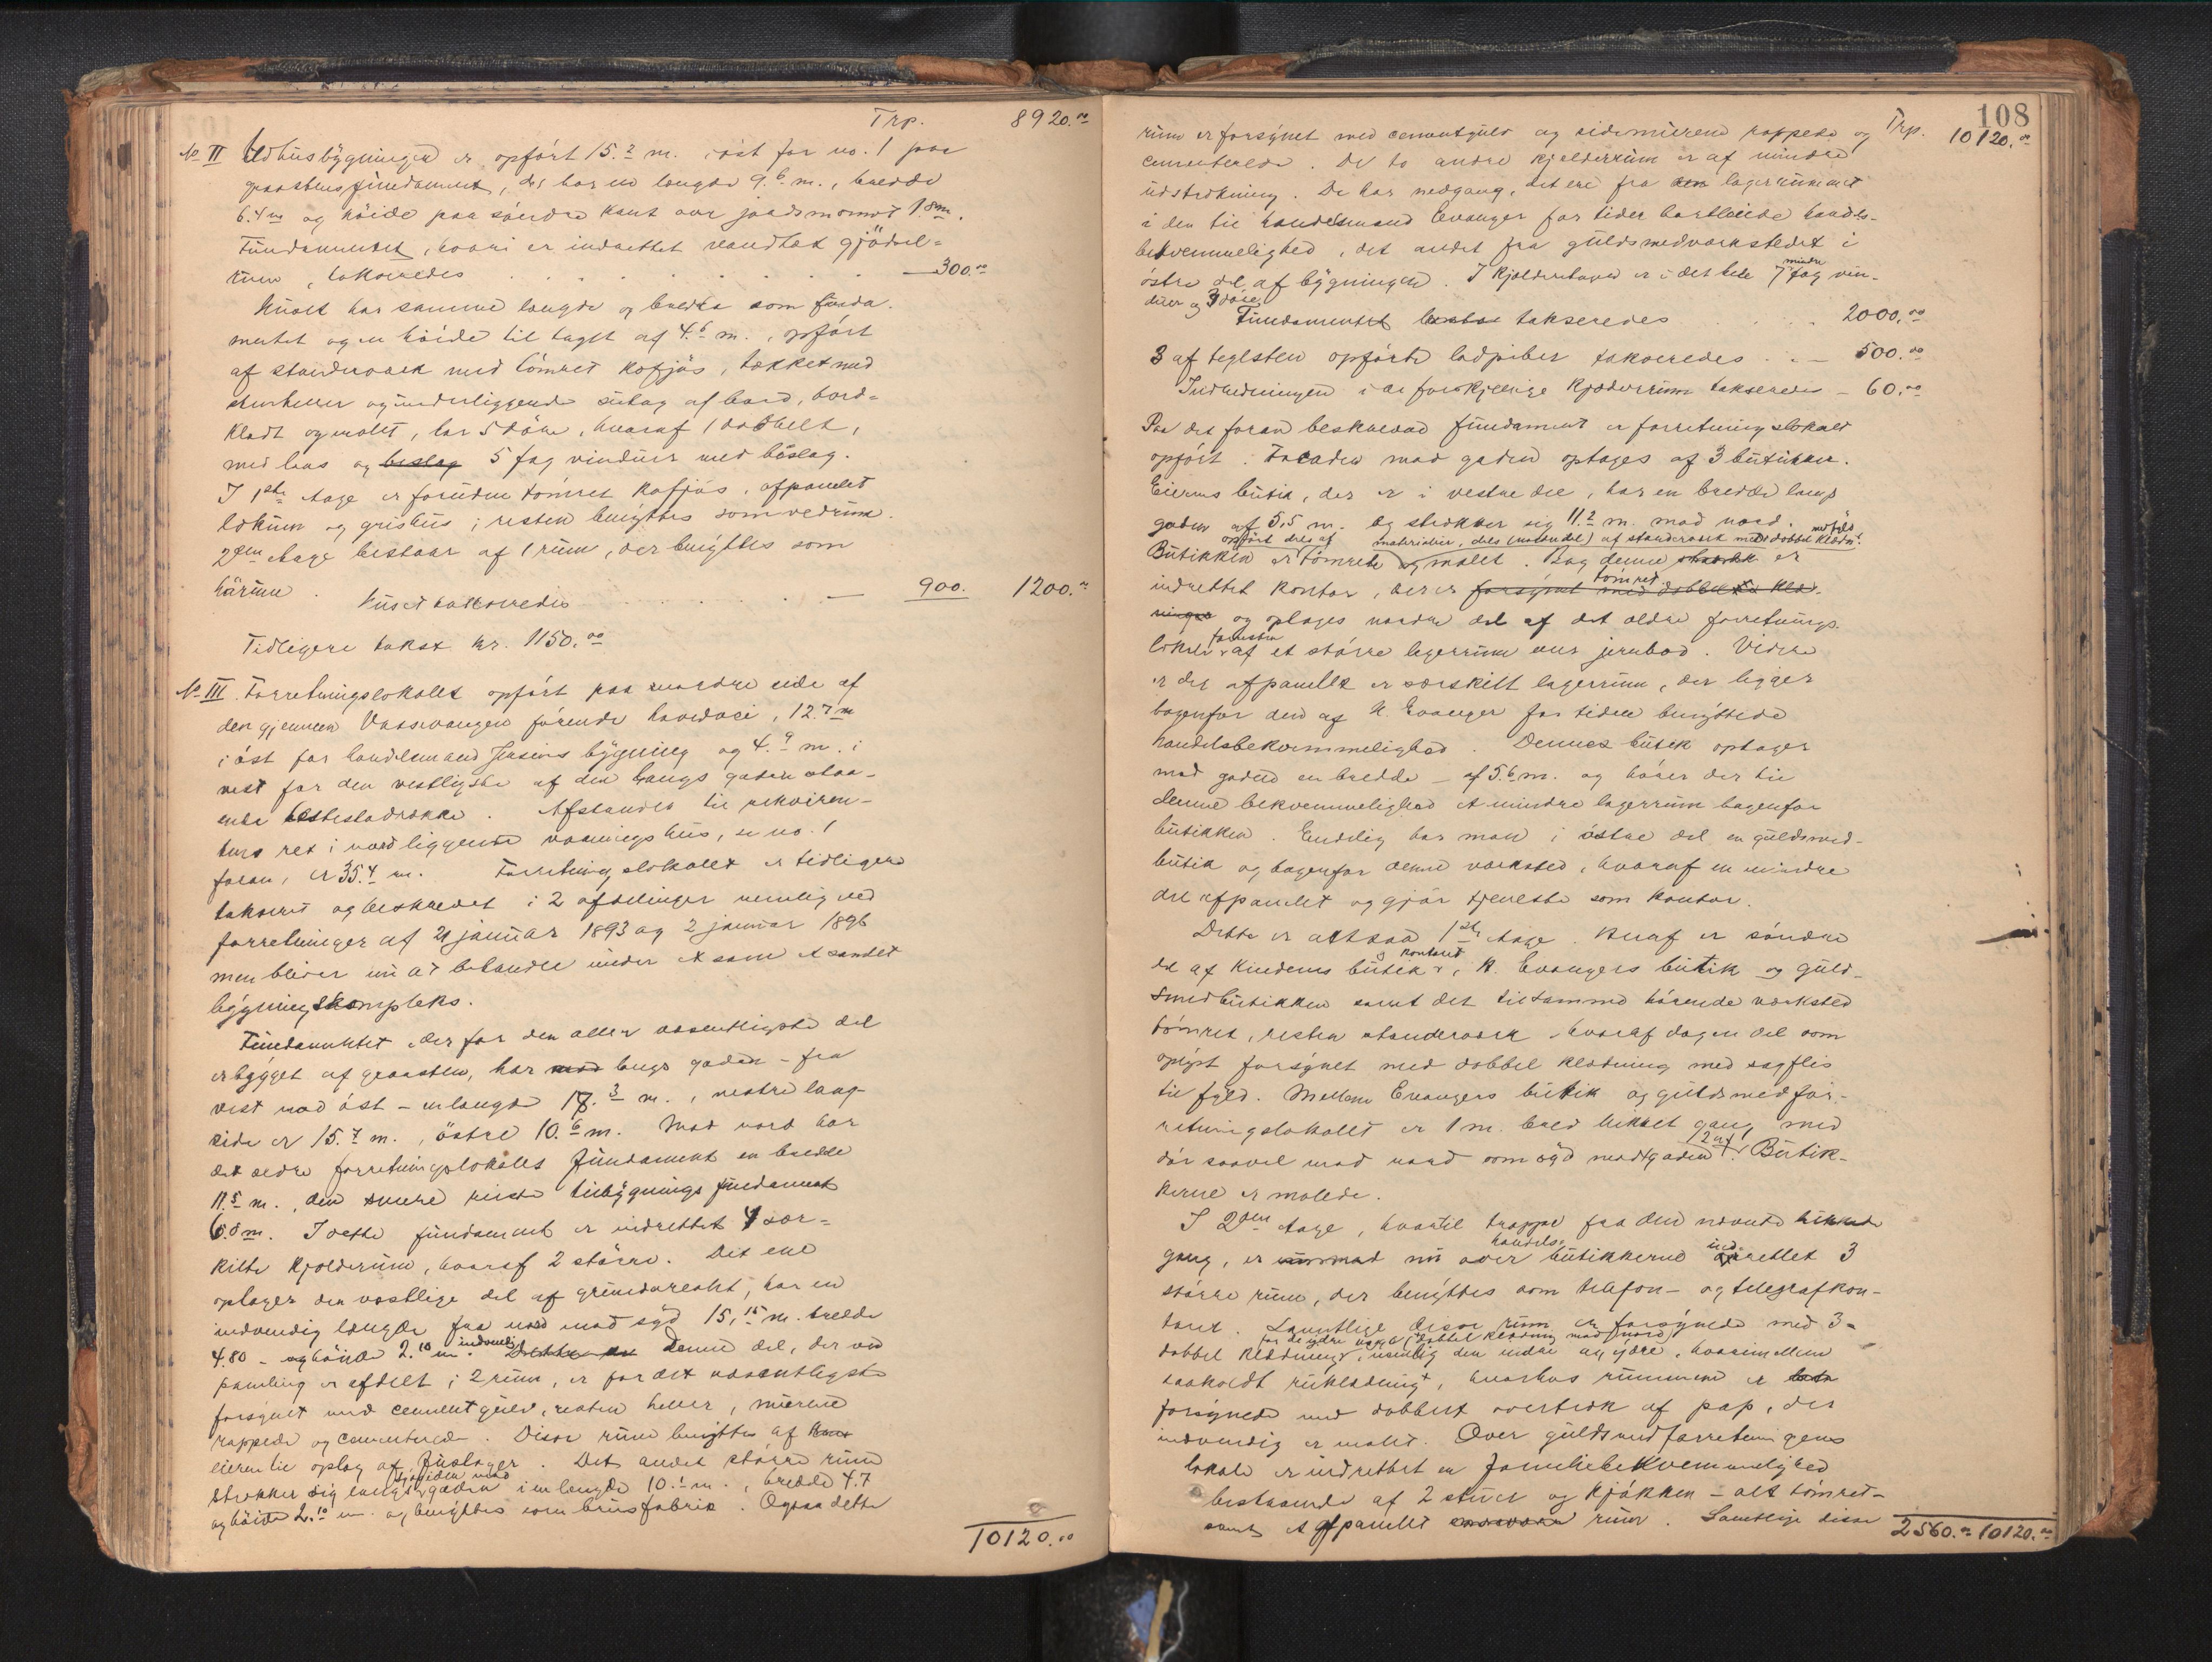 Trp. 8920.00
No II Udhusbygningen er opført 15.2 m. i øst for no. 1 paa
graastensfundament, der har en længde 9.6 m., bredde
6.4 m og høide paa søndre kant over jordsmonnet 1.8 m.
Fundamentet, hvori er indrettet vandtæt gjødsel=
rum, takseredes 300.00
Huset har samme længde og bredde som funda-
mentet og en høide til taget af 4.6 m., opført
af stenderværk med tømret kofjøs, tækket med
stenheller og underliggende sutag af bord, bord=
klædt og malet, har 5 døre, hvoraf 1 dobbelt,
med laas og beslag 5 fag vinduer med beslag.
I 1ste etage er foruden tømret kofjøs, afpanelet
lokum og grishus; resten benyttes som vedrum.
2den etage bestaar af 1 rum, der benyttes som
hørum. Huset takseredes 900. 1200.00
Tidligere takst kr. 1150.00
No III. Forretningslokalet opført paa nordre side af
den gjennem Vossevangen førende hovedvei, 12.7 m
i øst for handelsmand Jensens bygning og 4.9 m. i
vest for den vestligste af den langs gaden staa-
ende hestestadrække. Afstanden til rekviren-
tens ret i nord liggende vaaningshus, se no. 1
foran, er 35.4 m. Forretningslokalet er tidligere
takseret og beskrevet i 2 afdelinger nemlig ved
forretninger af 21 januar 1893 og 2 januar 1896
men bliver nu at behandle under et som et samlet
bygningskompleks.
Fundamentet der for den aller væsentligste del
er bygget af graasten, har mod langs gaden - fra
vest mod øst - en længde 17.3 m., vestre lang-
side er 15.7 m., østre 10.6 m. Mod nord har
det ældre forretningslokales fundament en bredde
11.5 m., den senere reiste tilbygnings fundament
6.8 m. I dette fundament er indrettet 4 sær=
kilte kjelderrum, hvoraf 2 større. Det ene
optager den vestlige del af grundarealet, har en
indvendig længde fra nord mod syd 15,15 m. bredde
4.80 - og høide 2.10 m. indvendig Dette er Denne del, der ved
paneling er afdelt i 2 rum, er for det væsentligste
forsynet med cementgulv, resten heller, murene
rappede og cementerede. Disse rum benyttes af
eieren til oplag af . Det andet større rum
strækker sig langs siden mod gaden i en længde 10.1 m., bredde 4.7
og høide 2.10 m. og benyttes som brusfabrik. Ogsaa dette
10120.00
108
Trp. 10120.00
rum er forsynet med cementgulv og sidemurene rappede og
cementerede. De to andre kjelderrum er af mindre
udstrækning. De har nedgang, det ene fra den lagerrummet
i den til handelsmand Evanger for tiden bortleiede handels-
bekvemmelighed, det andet fra guldsmedværkstedet i
østre del af bygningen. I kjelderetagen er i det hele 7 mindre fag vin-
duer og 3 døre.
Fundamentet takseredes 2000.00
3 af teglsten opførte ladpiber takseredes 500.00
Indredningen i de forskjellige kjelderrum takseredes - 60.00
Paa det foran beskrevne fundament er forretningslokalet
opført. Facaden mod gaden optages af 3 butikker.
Eierens butik, der er i vestre del, har en bredde langs
gaden af 5,5 m. og strækker sig 11.2 m. mod nord.
opført dels af materialier, dels (nordre del) af stenderværk med dobbel klædn.
Butikken er tømret og malet. Bag denne er
indrettet kontor, der er tømret forsynet med dobbelt klæd-
ninger og optages nordre del af det ældre forretnings-
lokale forresten af et større lagerrum over jernbod. Videre
er der afpanelet et særskilt lagerrum, der ligger
bagenfor den af K. Evanger for tiden benyttede
handelsbekvemmelighed. Dennes butik optager
mod gaden en bredde - af 5.6 m. og hører der til
denne bekvemmelighed et mindre lagerrum bagenfor
butikken. Endelig har man i østre del en guldsmed-
butik og bagenfor denne værksted, hvoraf en mindre
del afpanelet og gjør tjeneste som kontor.
Dette er altsaa 1ste etage. Heraf er søndre
del af Eierens butik og kontoret, K. Evangers butik og guld-
smedbutikken samt det til samme hørende værksted
tømret, resten stenderværk - hvoraf dagen del som
oplyst forsynet med dobbel klædning med sagflis
til fyld. Mellem Evangers butik og guldsmedfor-
retningslokalet er 1 m. bred lukket gang med
dør saavel mod nord som syd mod gaden. Butik-
kerne er malede.
I 2den etage, hvortil trappe fra den nævnte lukkede
gang, er nu over handels-butikkerne indrettet 3
større rum, der benyttes som telefon- og telegrafkon-
toret. Samtlige disse rum er forsynede med 3-
dobbel klædning, nemlig den indre og ydre, hvorimellem
saakaldt rukledning, hvorhos rummene er
forsynede med dobbelt overtræk af pap, der
indvendig er malet. Over guldsmedforretningens
lokale er indrettet en familiebekvemmelighed
bestaaende af 2 stuer og kjøkken - alt tømret -
samt et afpanelt rum. Samtlige disse
2560.00 10120.00